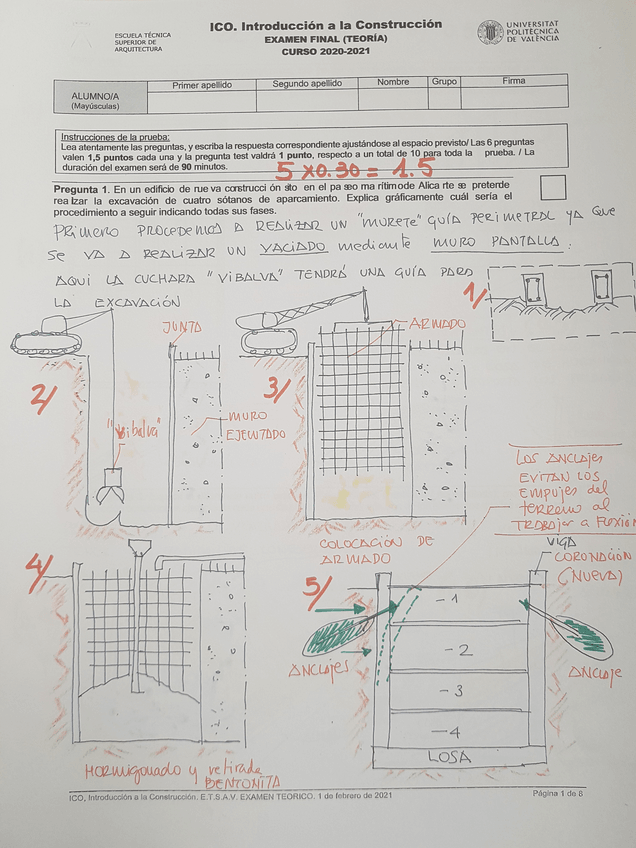 ESCUELA TÉCNICA
SUPERIOR DE
ARQUITECTURA
ICO. Introducción a la Construcción
EXAMEN FINAL (TEORÍA)
CURSO 2020-2021
UNIVERSITAT
POLITÈCNICA
DE VALÈNCIA
ALUMNO/A
(Mayúsculas)
Primer apellido
Segundo apellido
Nombre
Grupo
Firma
Instrucciones de la prueba:
Lea atentamente las preguntas, y escriba la respuesta correspondiente ajustándose al espacio previsto/ Las 6 preguntas
valen 1,5 puntos cada una y la pregunta test valdrá 1 punto, respecto a un total de 10 para toda la prueba. / La
duración del examen será de 90 minutos.
5 x0.30 = 1.5
Pregunta 1. En un edificio de nueva construcción sito en el paseo marítimo de Alicante se pretende
realizar la excavación de cuatro sótanos de aparcamiento. Explica gráficamente cuál sería el
procedimiento a seguir indicando todas sus fases.
PRIMERO PROCEDEMOS A REALIZAR UN "MURETE" GUÍA PERIMETRAL YA QUE
SE VA A REALIZAR UN VACIADO mediante MURO PANTALLA.
AQUI LA CUCHARA "VIBALVA" TENDRÁ UNA GUÍA PARA
LA EXCAVACIÓN
1/
2/
JUNTA
"Vibalva"
MURO
EJECUTADO
3/
ARMADO
COLOCACIÓN DE
ARMADO
LOS ANCLAJES
EVITAN LOS
EMPUJES del
TERRENO al
TRABAJAR A FLEXIÓN
4/
HORMIGONADO y retirada
BENTONITA
5/
VIGA
CORONACIÓN
(NUEVA)
ANCLAJES
ANCLAJE
-1
-2
-3
-4
LOSA
ICO, Introducción a la Construcción. E.T.S.A.V. EXAMEN TEORICO. 1 de febrero de 2021
Página 1 de 8